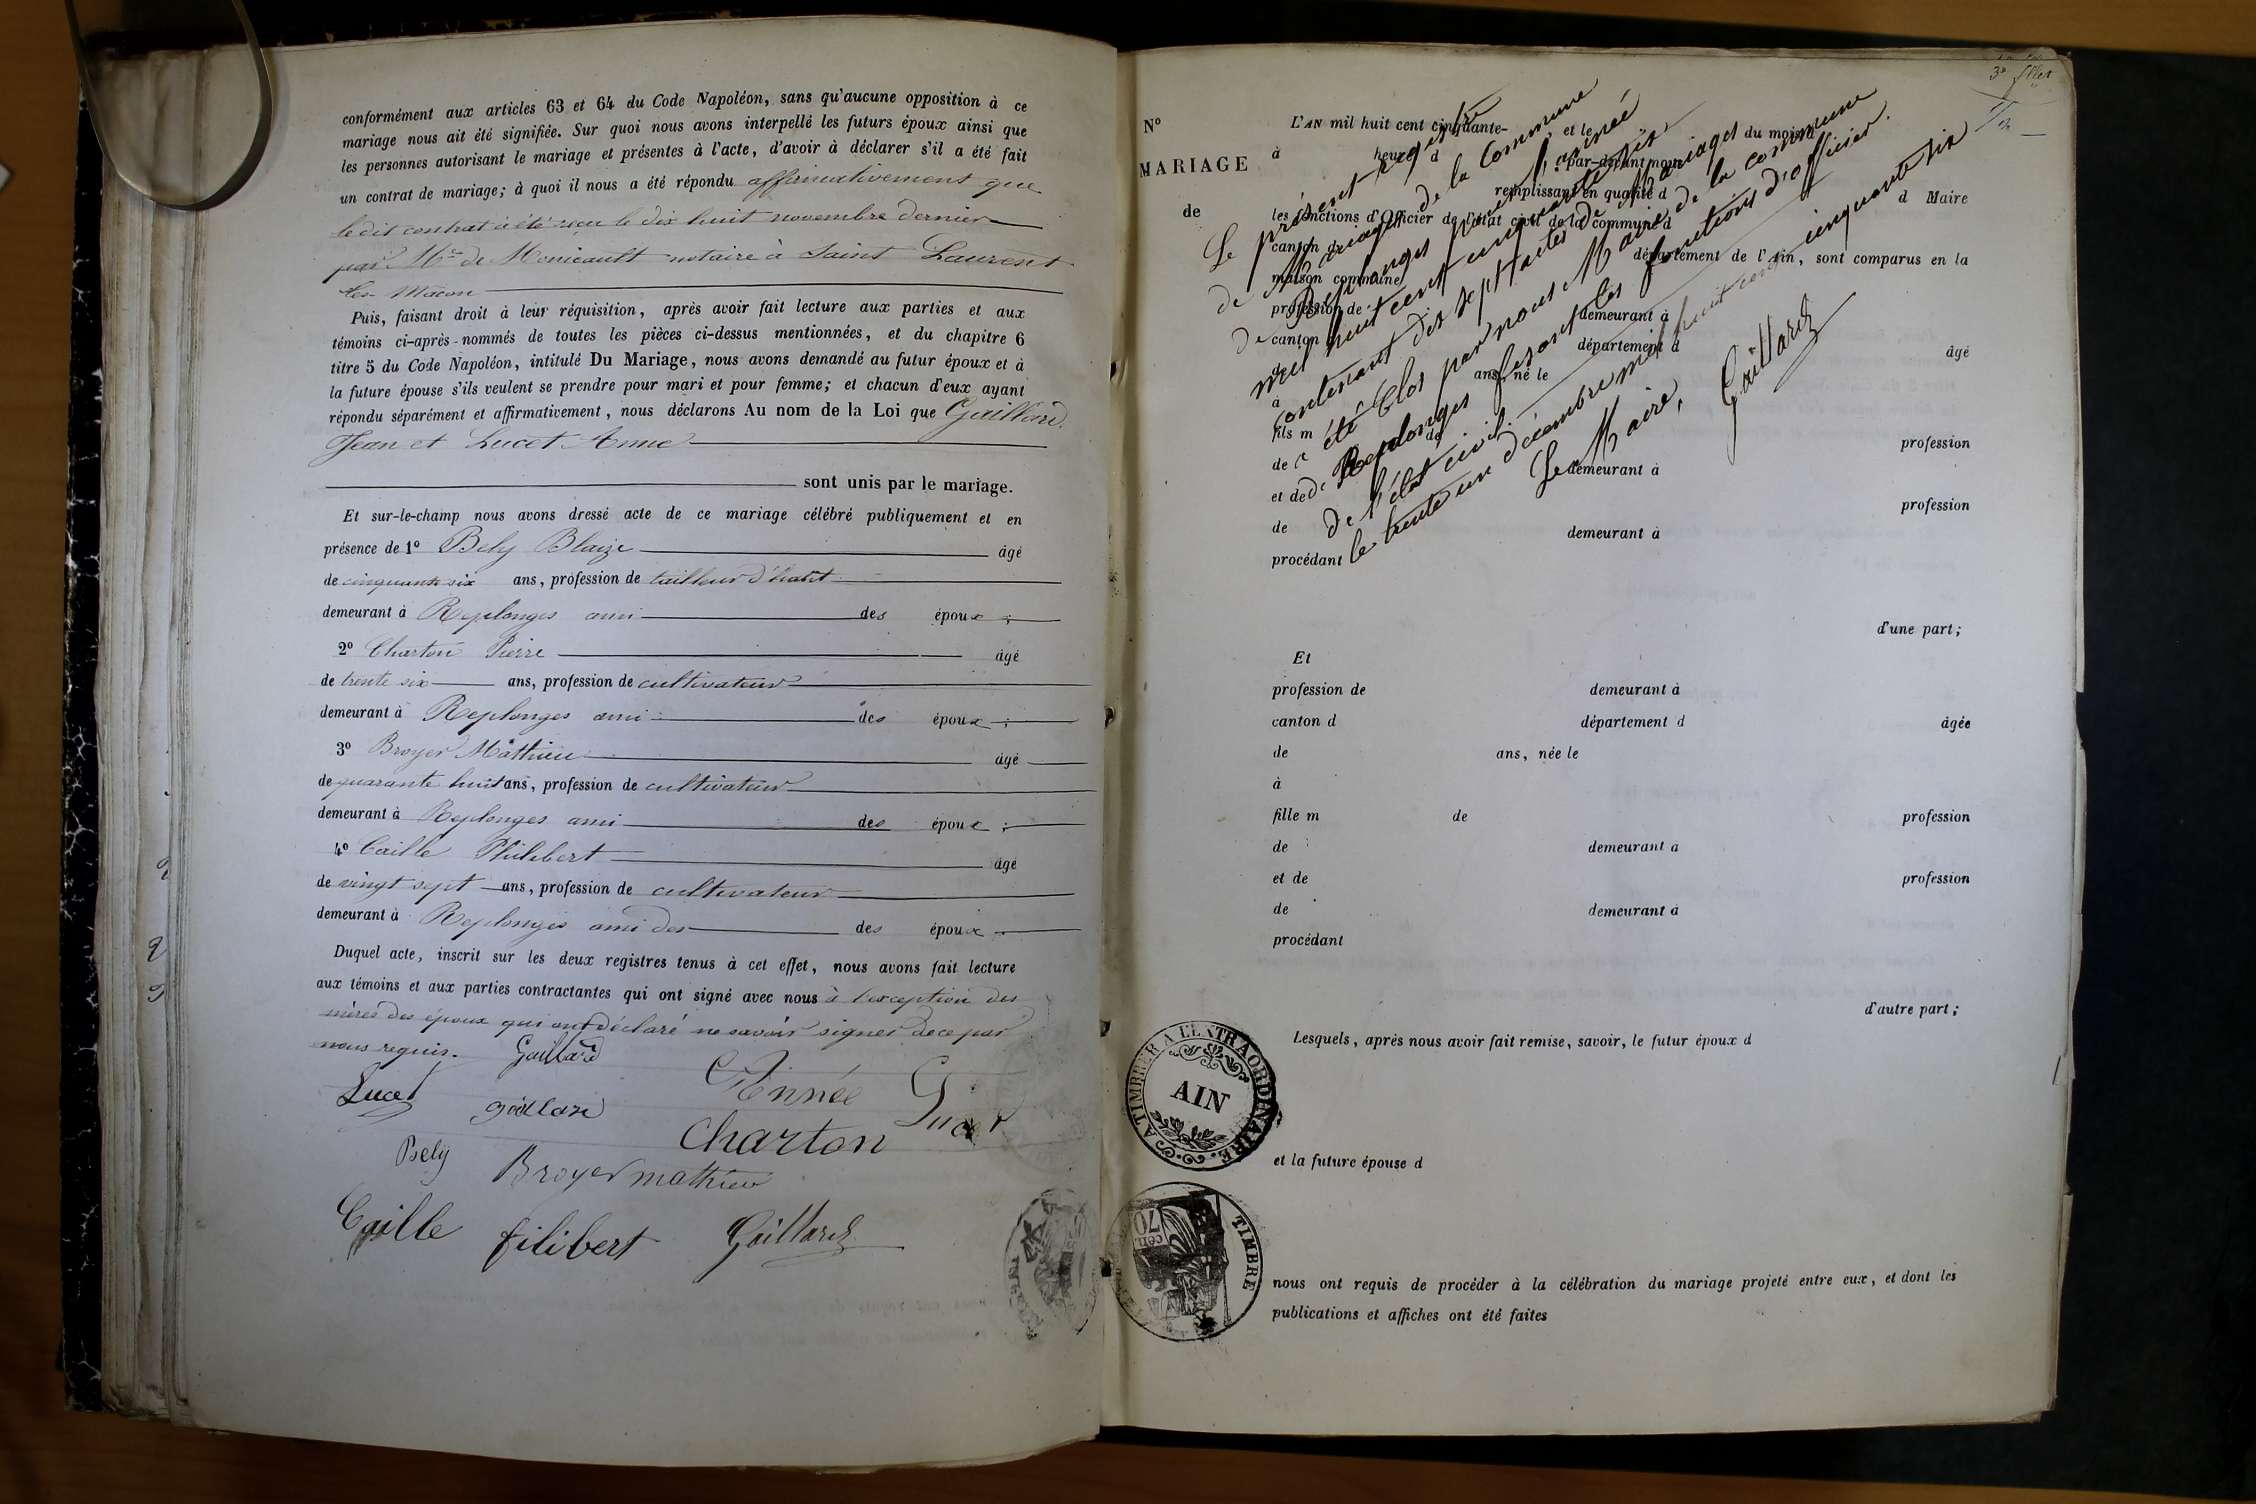 conformément aux articles 63 et 64 du Code Napoléon, sans qu'aucune opposition à ce
mariage nous ait été signifiée. Sur quoi nous avons interpellé les futurs époux ainsi que
les personnes autorisant le mariage et présentes à l'acte, d'avoir à déclarer s'il a été fait
un contrat de mariage; à quoi il nous a été répondu affirmativement que
le dit contrat a été reçu le dix huit novembre dernier
par Me de Monicault notaire à Saint Laurent
les Macon
Puis, faisant droit à leur réquisition, après avoir fait lecture aux parties et aux
témoins ci-après-nommés de toutes les pièces ci-dessus mentionnées, et du chapitre 6
titre 5 du Code Napoléon, intitulé Du Mariage, nous avons demandé au futur époux et à
la future épouse s'ils veulent se prendre pour mari et pour femme; et chacun d'eux ayant
répondu séparément et affirmativement, nous déclarons Au nom de la Loi que Gaillard
Jean et Lucet Anne
sont unis par le mariage.
Et sur-le-champ nous avons dressé acte de ce mariage célébré publiquement et en
présence de 1º Bely Blaize âgé
de cinquante six ans, profession de tailleur d'habit
demeurant à Replonges ami des époux ;
2º Charton Pierre âgé
de trente six ans, profession de cultivateur
demeurant à Replonges ami des époux ;
3º Broyer Mathieu âgé
de quarante huit ans, profession de cultivateur
demeurant à Replonges ami des époux ;
4º Caille Philibert âgé
de vingt sept ans, profession de cultivateur
demeurant à Replonges ami des des époux
Duquel acte, inscrit sur les deux registres tenus à cet effet, nous avons fait lecture
aux témoins et aux parties contractantes qui ont signé avec nous à l'exception des
mères des époux qui ont déclaré ne savoir signer de ce par
nous requis. Gaillard
Lucet gaillard Année Lucet
Charton
Bely Broyer mathieu
Caille filibert Gaillard
3e
Nº
MARIAGE
de
L'AN mil huit cent cinquante- et le du mois d
à heure d , par-devant nous
remplissant en qualité d
les fonctions d'Officier de l'état civil de la commune d d Maire
canton d département de l'Ain, sont comparus en la
maison commune
profession de demeurant à
canton département d âgé
ans, né le
à
fils m de profession
de demeurant à
et de profession
de demeurant à
procédant
Le présent registre
de Mariages de la Commune
de Replonges pour l'année
mil huit cent cinquante six
contenant dix sept actes de Mariages
a été Clos par nous Maire de la commune
de Replonges fesant les fonctions d'officier
de l'état civil.
le trente un décembre mil huit cent cinquante six
Le Maire,
Gaillard
d'une part;
Et
profession de demeurant à
canton d département d âgée
de ans, née le
à
fille m de profession
de demeurant à
et de profession
de demeurant à
procédant
d'autre part;
Lesquels, après nous avoir fait remise, savoir, le futur époux d
A TIMBRER A L'EXTRAORDINAIRE.
AIN
et la future épouse d
TIMBRE
70
cen.
nous ont requis de procéder à la célébration du mariage projeté entre eux, et dont les
publications et affiches ont été faites